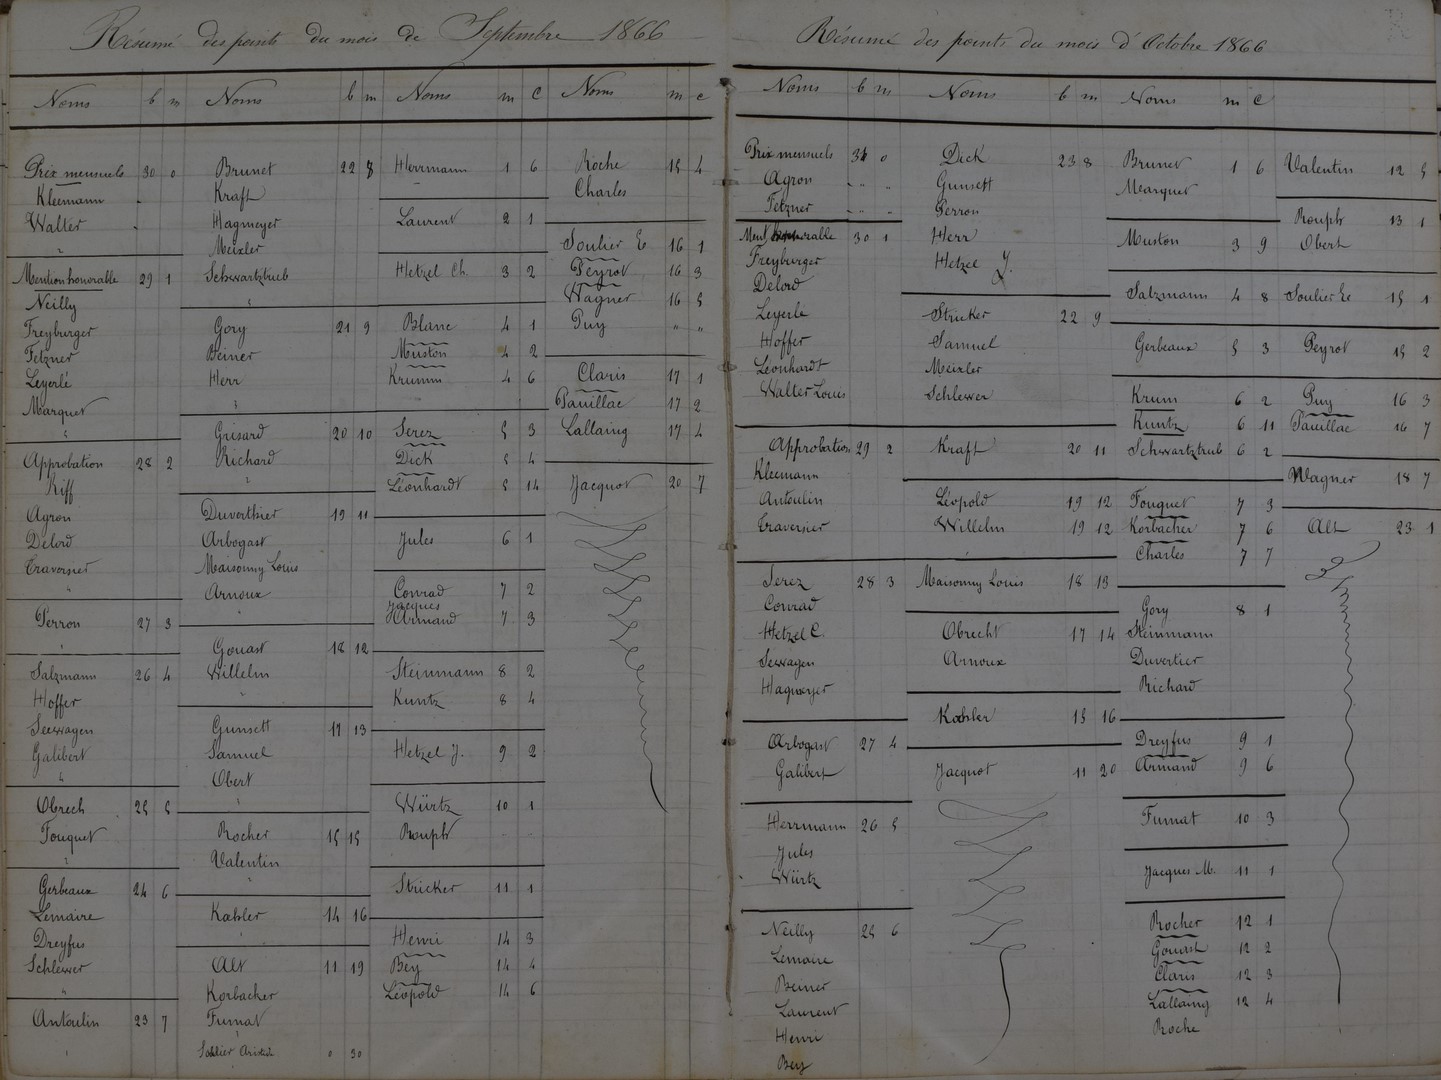 Résumé des points du mois de Septembre 1866
Noms b m
Prix mensuels 30 0
Kleemann "
Walter "
"
Mention honorable 29 1
Neilly
Freyburger
Fetzner
Leyerlé
Marquet
"
Approbation 28 2
Riff
Agron
Delord
Traversier
"
Perron 27 3
"
Salzmann 26 4
Hoffer
Seewagen
Galibert
"
Obrech 25 5
Fouquet
"
Gerbeaux 24 6
Lemaire
Dreyfus
Schlewer
"
Antoulin 23 7
"
Noms b m
Brunet 22 8
Kraft
Hagmeyer
Meixler
Schwartztrub
"
Gory 21 9
Beiner
Herr
"
Grisard 20 10
Richard
"
Duverthier 19 11
Arbogast
Maisonny Louis
Arnoux
"
Gouast 18 12
Willelm
"
Gunsett 17 13
Samuel
Obert
"
Rocher 15 15
Valentin
"
Kahler 14 16
"
Alt 11 19
Korbacher
Fumat
"
Soulier Aristide 0 30
Noms m c
Herrmann 1 6
Laurent 2 1
Hetzel Ch. 3 2
Blanc 4 1
Muston 4 2
Krumm 4 6
Serez 5 3
Dick 5 4
Léonhardt 5 14
Jules 6 1
Conrad 7 2
Jacques
Armand 7 3
Steinmann 8 2
Kuntz 8 4
Hetzel J. 9 2
Würtz 10 1
Rouph " "
Stricker 11 1
Henri 14 3
Bey 14 4
Léopold 14 6
Noms m c
Roche 15 4
Charles
Soulier E 16 1
Peyrot 16 3
Wagner 16 5
Puy " "
Claris 17 1
Pauillac 17 2
Lallaing 17 4
Jacquot 20 7
Résumé des points du mois d'Octobre 1866
Noms b m
Prix mensuels 31 0
Agron " " "
Fetzner " " "
Ment honorable 30 1
Freyburger
Delord
Leyerlé
Hoffer
Léonhardt
Walter Louis
Approbation 29 2
Kleemann
Antoulin
Traversier
Serez 28 3
Conrad
Hetzel C.
Seewagen
Hagmeyer
Arbogast 27 4
Galibert
Herrmann 26 5
Jules
Würtz
Neilly 25 6
Lemaire
Beiner
Laurent
Henri
Bey
Noms b m
Dick 23 8
Gunsett
Perron
Herr
Hetzel J.
Stricker 22 9
Samuel
Meixler
Schlewer
Kraft 20 11
Léopold 19 12
Willelm 19 12
Maisonny Louis 18 13
Obrecht 17 14
Arnoux
Kahler 15 16
Jacquot 11 20
Noms m c
Brunet 1 6
Marquet
Muston 3 9
Salzmann 4 8
Gerbeaux 5 3
Krum 6 2
Kuntz 6 11
Schwartztrub 6 2
Fouquet 7 3
Korbacher 7 6
Charles 7 7
Gory 8 1
Steinmann
Duvertier
Richard
Dreyfus 9 1
Armand 9 6
Fumat 10 3
Jacques M. 11 1
Rocher 12 1
Gouast 12 2
Claris 12 3
Lallaing 12 4
Roche
Valentin 12 5
Rouph 13 1
Obert
Soulier E 15 1
Peyrot 15 2
Puy 16 3
Pauillac 16 7
Wagner 18 7
Alt 23 1